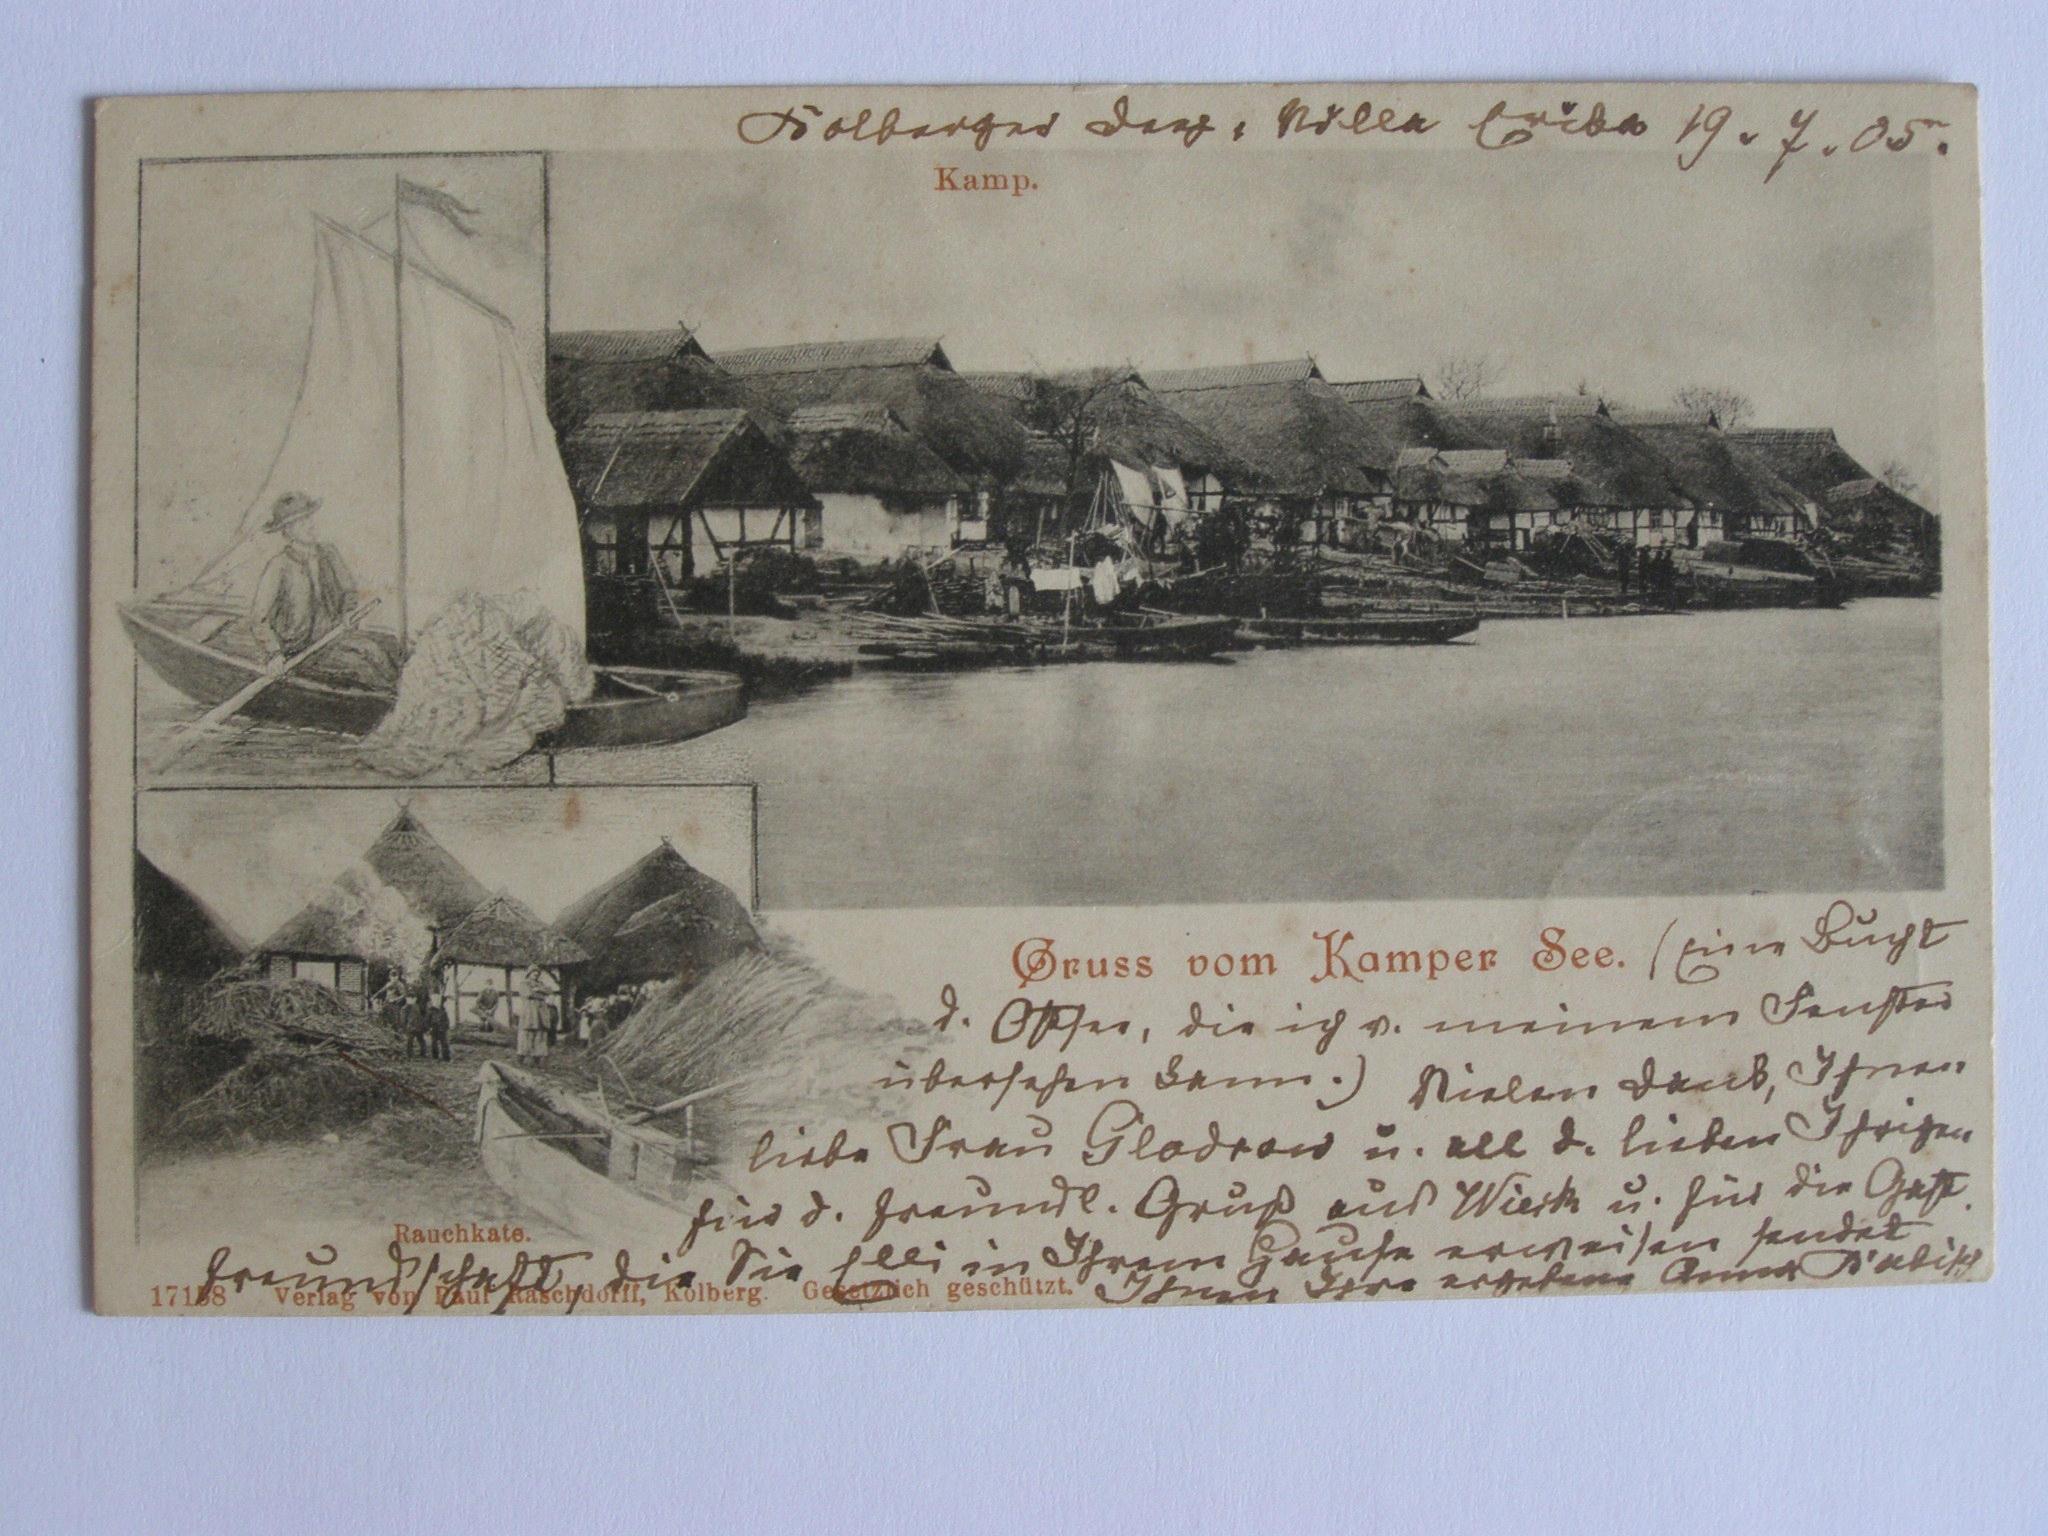 Kolberger Deep, Villa Erika 19.7.05.
Kamp.
Gruss vom Kamper See. (Eine Bucht
d. Ostsee, die ich v. meinem Fenster
übersehen kann.) Vielen Dank, Ihnen
liebe Frau Glodrow u. all d. lieben Ihrigen
für d. freundl. Gruß aus Wieck u. für die Gast
Rauchkate.
freundschaft, die Sie Elli in Ihrem Hause erweisen sendet
Ihnen Ihre ergebene Anna
17158 Verlag von Paul Raschdorff, Kolberg. Gesetzlich geschützt.